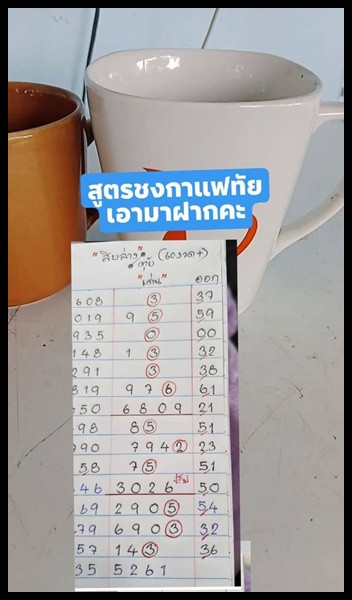 สูตรชงกาแฟทัย
เอามาฝากคะ
"สิบล่าง" (60งวด+)
"เด่น" ออก
608 3 37
019 9 5 59
935 0 00
148 1 3 32
291 3 38
819 9 7 6 61
50 6 8 0 9 21
98 8 5 51
90 7 9 4 2 23
58 7 5 51
46 3 0 2 6 50
69 2 9 0 5 54
79 6 9 0 3 32
57 1 4 3 36
35 5 2 6 1